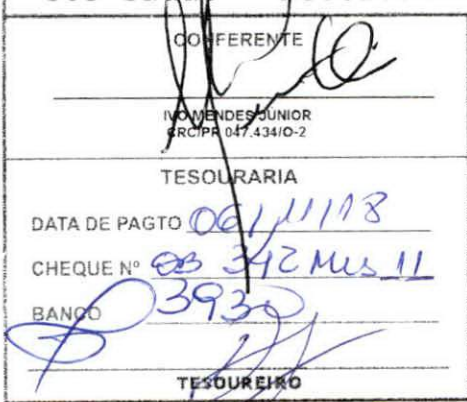 CONFERENTE
IVO MENDES JUNIOR
CRC/PR 047.434/O-2
TESOURARIA
DATA DE PAGTO 06/11/18
CHEQUE Nº 342 Mês 11
BANCO 3930
TESOUREIRO